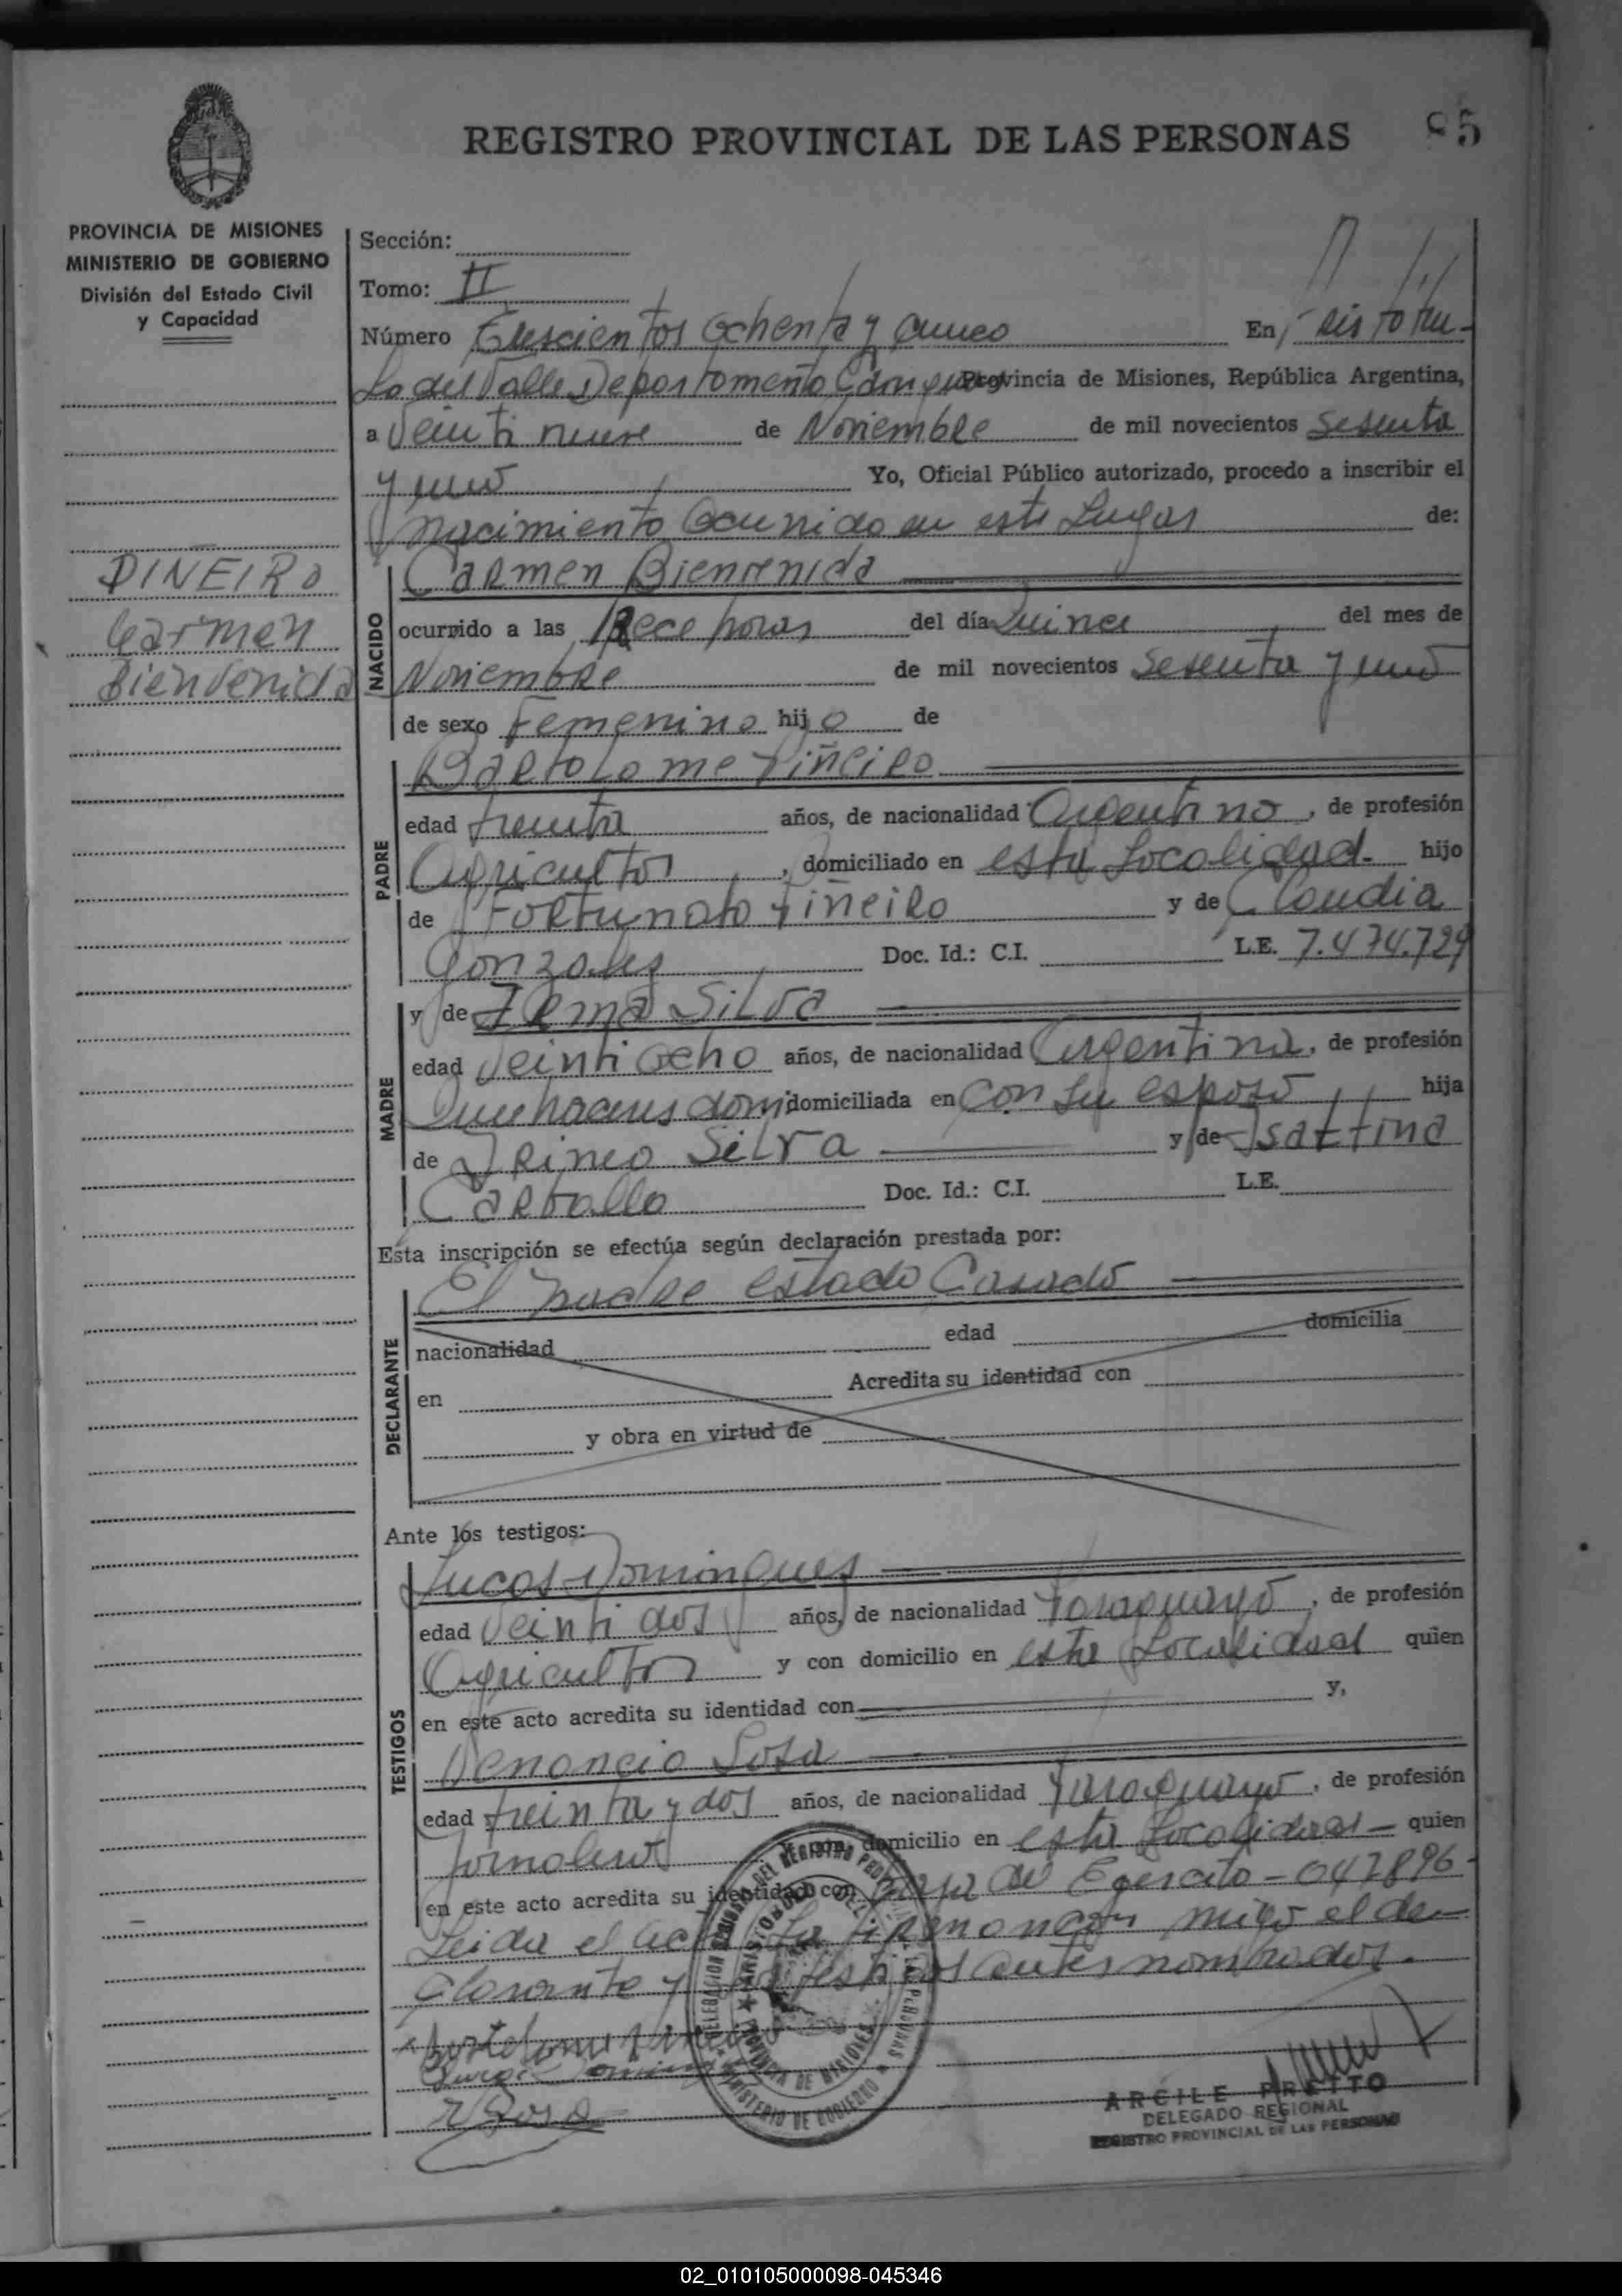 REGISTRO PROVINCIAL DE LAS PERSONAS 85
PROVINCIA DE MISIONES
MINISTERIO DE GOBIERNO
División del Estado Civil
y Capacidad
PIÑEIRO
Carmen
Bienvenida
Sección:
Tomo: II
Número Trescientos Ochenta y Cinco En Aristobu-
lo del Valle Departamento Cainguas Provincia de Misiones, República Argentina,
a Veinti nueve de Noviembre de mil novecientos Sesenta
y uno Yo, Oficial Público autorizado, procedo a inscribir el
nacimiento Ocurrido en este Lugar de:
NACIDO
Carmen Bienvenida
ocurrido a las Trece horas del día Quince del mes de
Noviembre de mil novecientos Sesenta y uno
de sexo Femenino hijo de
PADRE
Bartolome Piñeiro
edad treinta años, de nacionalidad Argentino, de profesión
Agricultor, domiciliado en esta Localidad- hijo
de Fortunato Piñeiro y de Claudia
Gonzales Doc. Id.: C.I. L.E. 7.474.729
MADRE
y de Irma Silva
edad Veinti Ocho años, de nacionalidad Argentina, de profesión
Quehaceres dom domiciliada en Con su esposo hija
de Irineo Silva y de
Carballo Doc. Id.: C.I. L.E.
Esta inscripción se efectúa según declaración prestada por:
DECLARANTE
El padre estado Casado
nacionalidad edad domicilia
en Acredita su identidad con
y obra en virtud de
Ante los testigos:
TESTIGOS
Lucas Domingues
edad Veinti dos años, de nacionalidad Paraguayo, de profesión
Agricultor y con domicilio en esta Localidad quien
en este acto acredita su identidad con y,
Venancio Sosa
edad treinta y dos años, de nacionalidad Paraguayo, de profesión
Jornalero domicilio en esta Localidad- quien
en este acto acredita su identidad con baja del Egercito-047896-
Leida el acta La firman conmigo el de-
clarante y los testigos antes nombrados.
DELEGACION
DEL REGISTRO
MINISTERIO DE GOBIERNO
PROVINCIA DE MISIONES
ARCILE PRETTO
DELEGADO REGIONAL
REGISTRO PROVINCIAL DE LAS PERSONAS
02_010105000098-045346